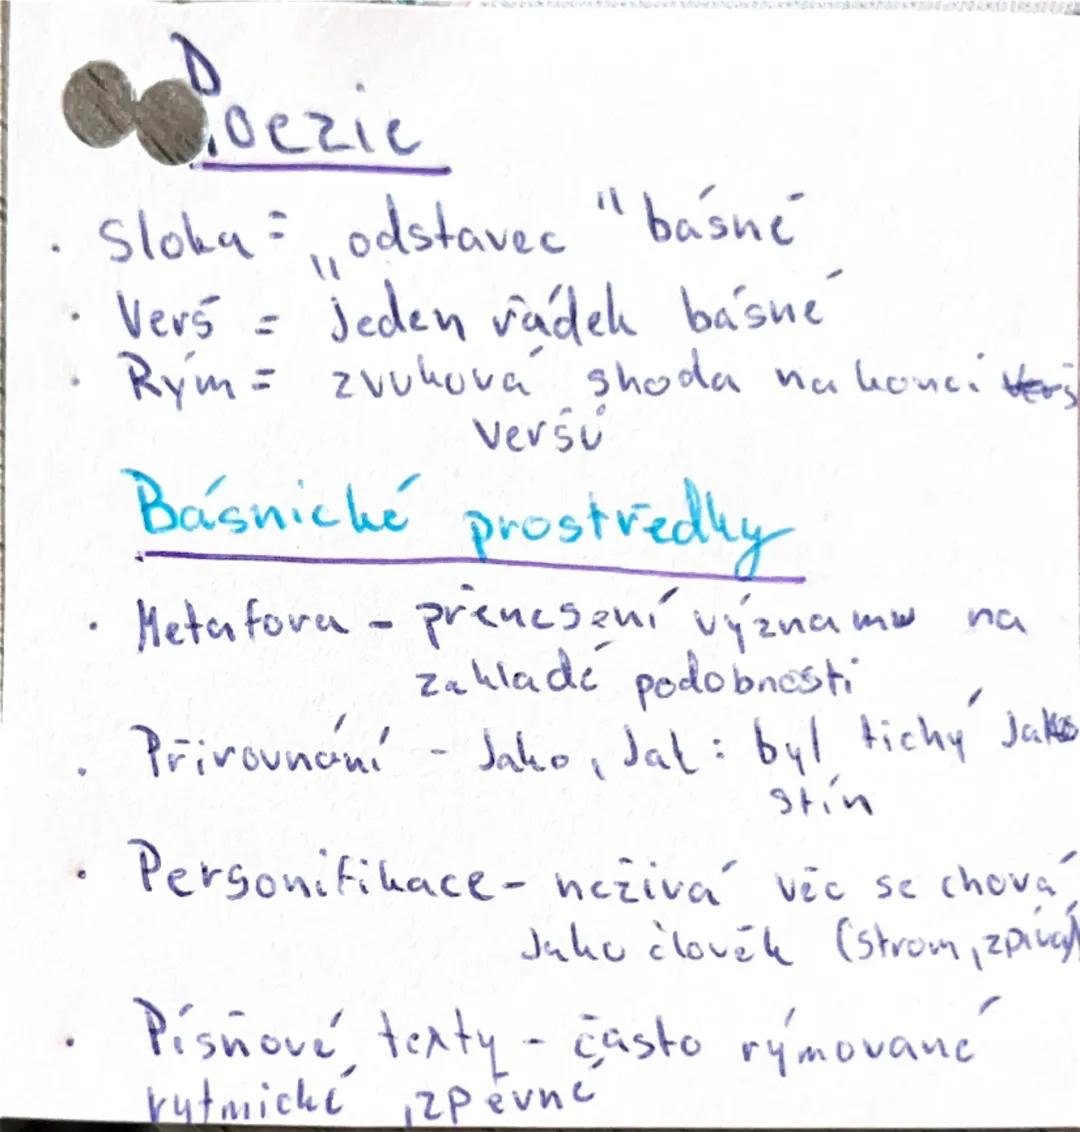 Poezie
• Sloka = „odstavec" básně
• Verš = jeden řádek básně
• Rým = zvuková shoda na konci verš
veršů
Básnické prostředky
• Metafora – přenesení významu na
základě podobnosti
• Přirovnání – jako, jak : byl tichý jako
stín
• Personifikace – neživá věc se chová
jako člověk (strom, zpívá)
• Písňové texty – často rýmované
rytmické, zpěvné